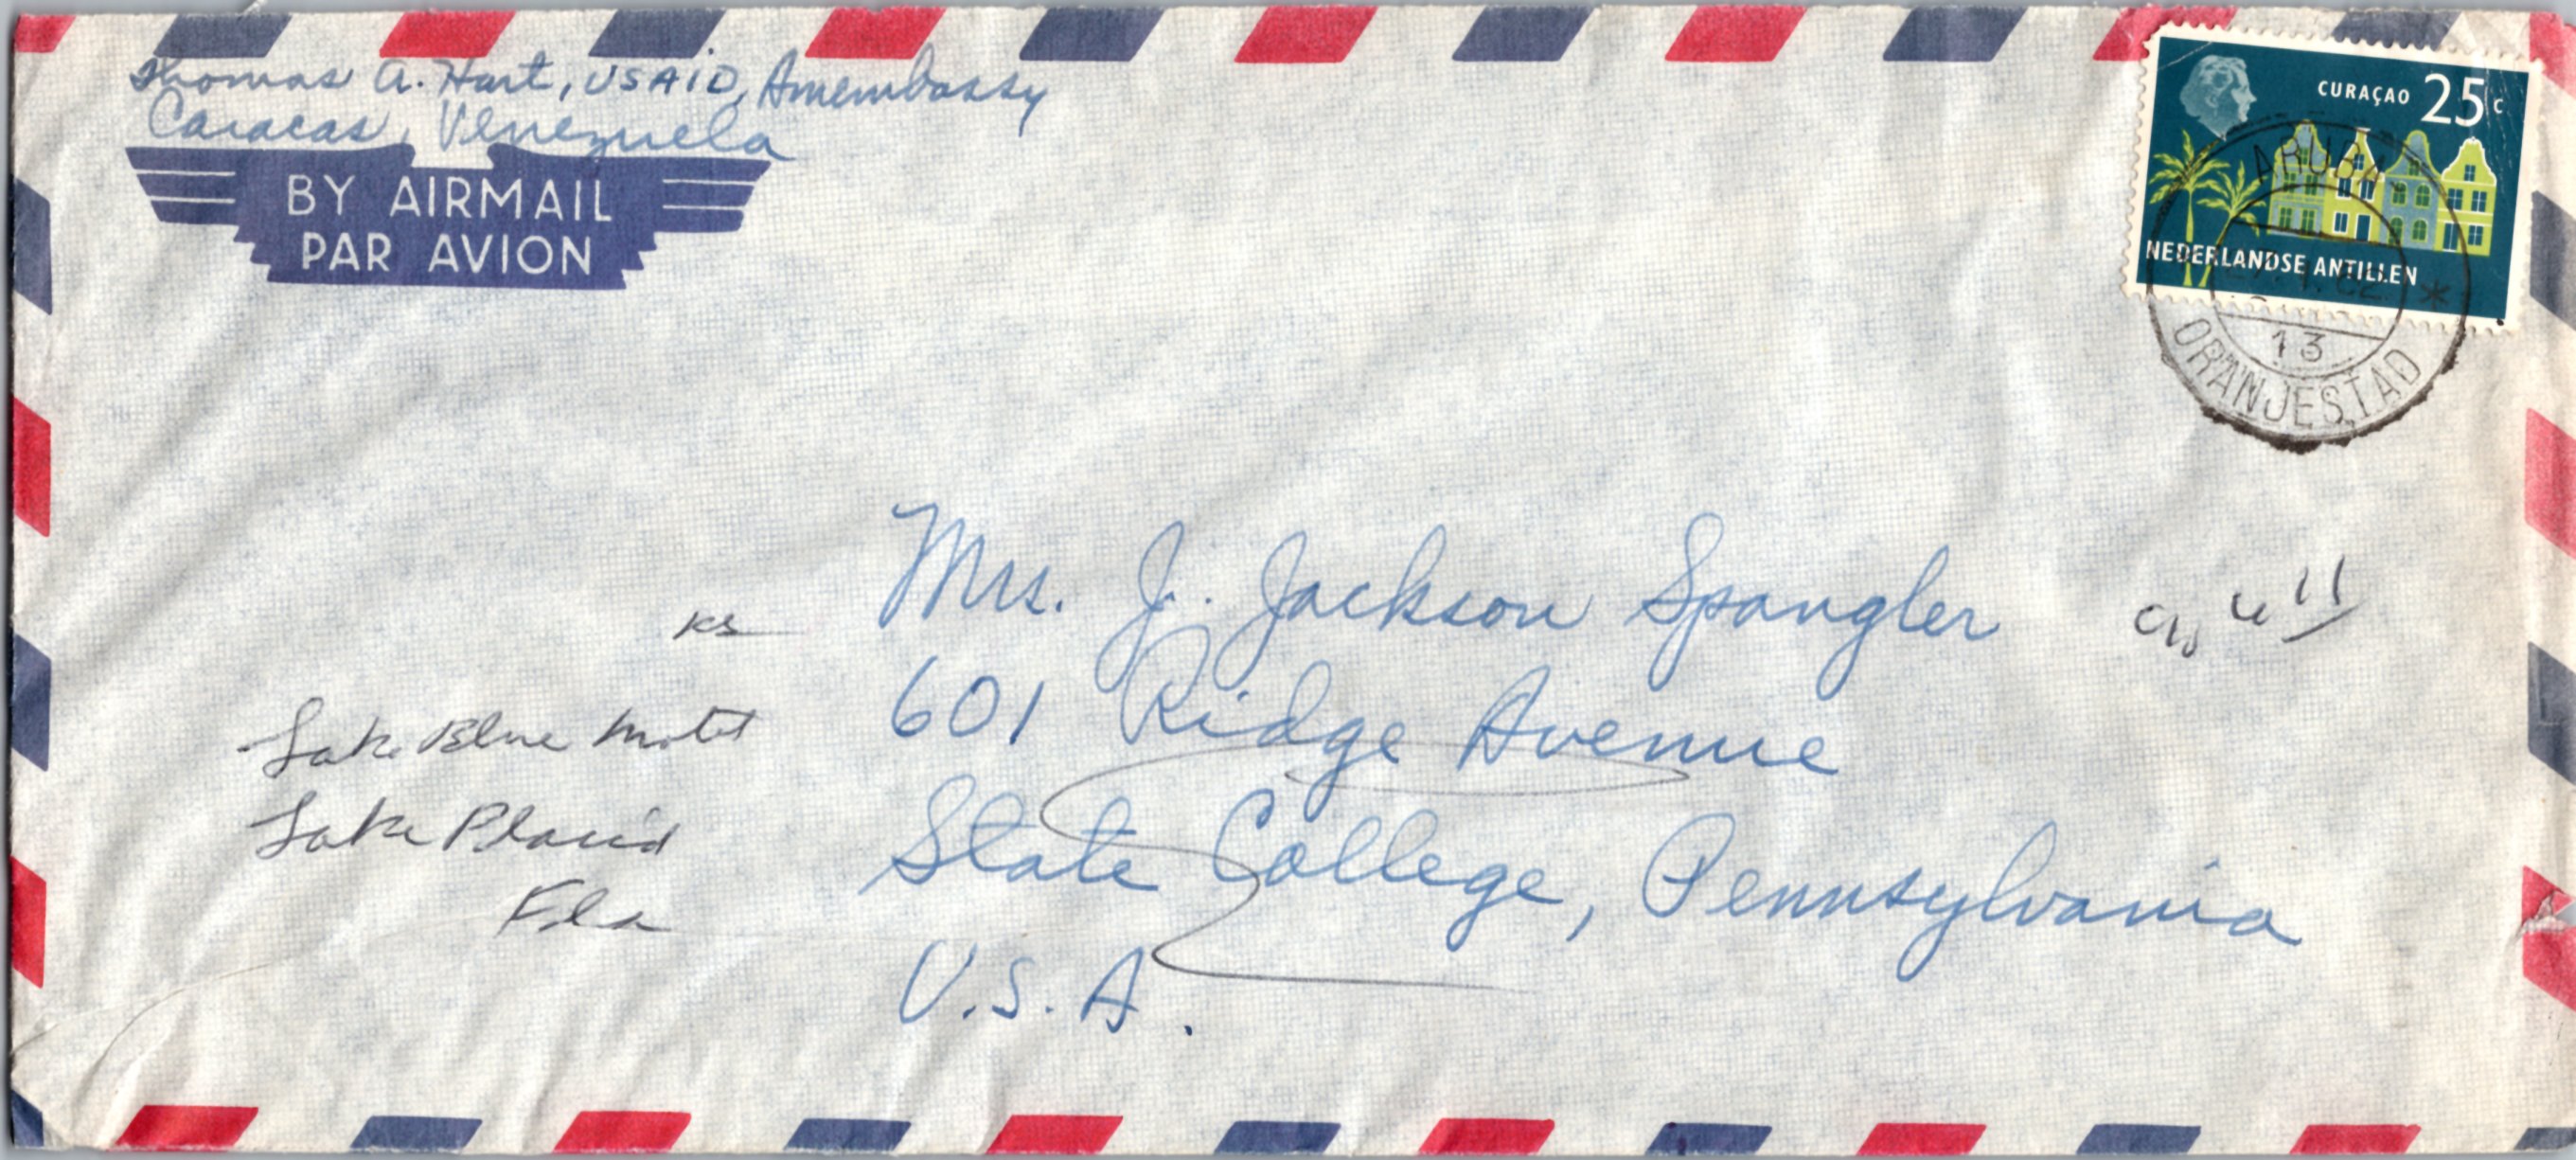 Thomas A. Hart, USAID, Amembassy
Caracas, Venezuela
BY AIRMAIL
PAR AVION
CURAÇAO 25 c
NEDERLANDSE ANTILLEN
ARUBA
13
ORANJESTAD
Mrs. J. Jackson Spangler
601 Ridge Avenue
State College, Pennsylvania
U.S.A.
Lake Blue Motel
Lake Placid
Fla